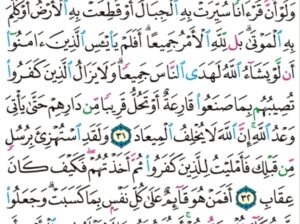 وَلَوْ أَنَّ قُرْءَانًا سُيِّرَتْ بِهِ ٱلْجِبَالُ أَوْ قُطِّعَتْ بِهِ ٱلْأَرْضُ أَوْ كُلِّمَ
بِهِ ٱلْمَوْتَىٰ ۗ بَل لِّلَّهِ ٱلْأَمْرُ جَمِيعًا ۗ أَفَلَمْ يَا۟يْـَٔسِ ٱلَّذِينَ ءَامَنُوٓا۟
أَن لَّوْ يَشَآءُ ٱللَّهُ لَهَدَى ٱلنَّاسَ جَمِيعًا ۗ وَلَا يَزَالُ ٱلَّذِينَ كَفَرُوا۟
تُصِيبُهُم بِمَا صَنَعُوا۟ قَارِعَةٌ أَوْ تَحُلُّ قَرِيبًا مِّن دَارِهِمْ حَتَّىٰ يَأْتِىَ
وَعْدُ ٱللَّهِ ۚ إِنَّ ٱللَّهَ لَا يُخْلِفُ ٱلْمِيعَادَ ٣١ وَلَقَدِ ٱسْتُهْزِئَ بِرُسُلٍ
مِّن قَبْلِكَ فَأَمْلَيْتُ لِلَّذِينَ كَفَرُوا۟ ثُمَّ أَخَذْتُهُمْ ۖ فَكَيْفَ كَانَ
عِقَابِ ٣٢ أَفَمَنْ هُوَ قَآئِمٌ عَلَىٰ كُلِّ نَفْسٍۭ بِمَا كَسَبَتْ ۗ وَجَعَلُوا۟